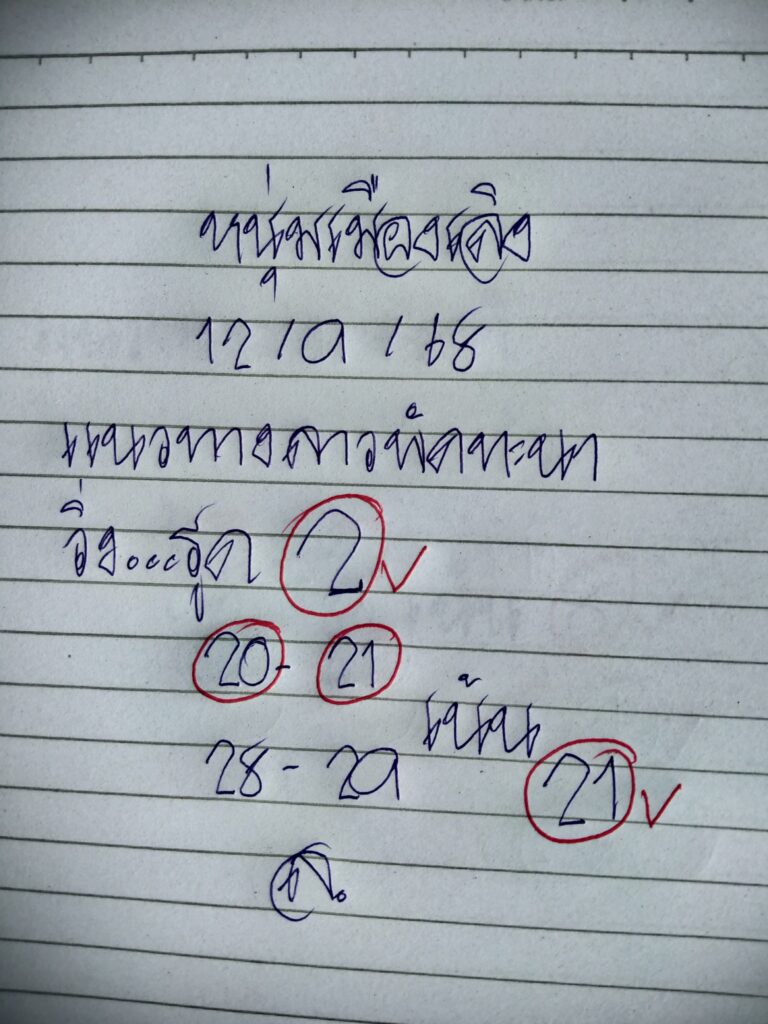 หนุ่มเมืองเลิง
12/9/68
แนวทางลาวพัฒนา
วิ่ง...รูด 2
20- 21
28-29 เน้น 21